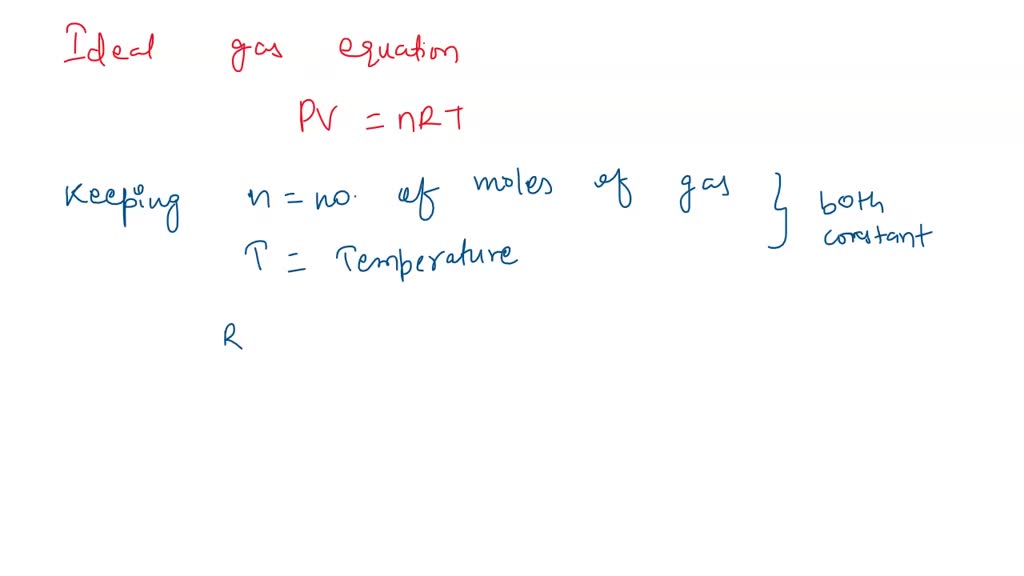 Ideal gas equation
PV = nRT
Keeping n = no. of moles of gas } both constant
T = Temperature
R